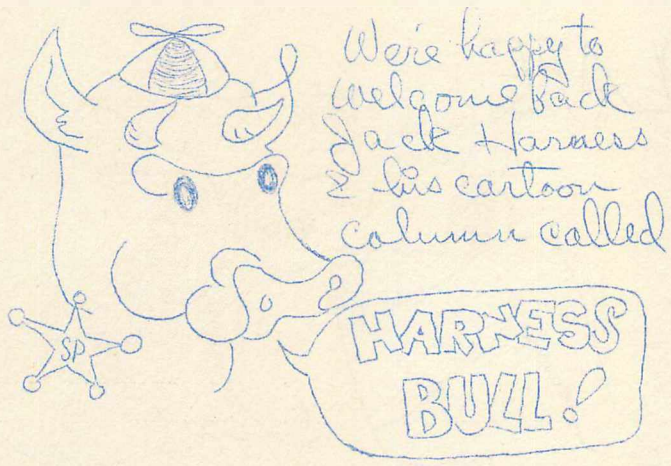 We're happy to
welcome back
Jack Harness
& his cartoon
column called
HARNESS
BULL!
SP